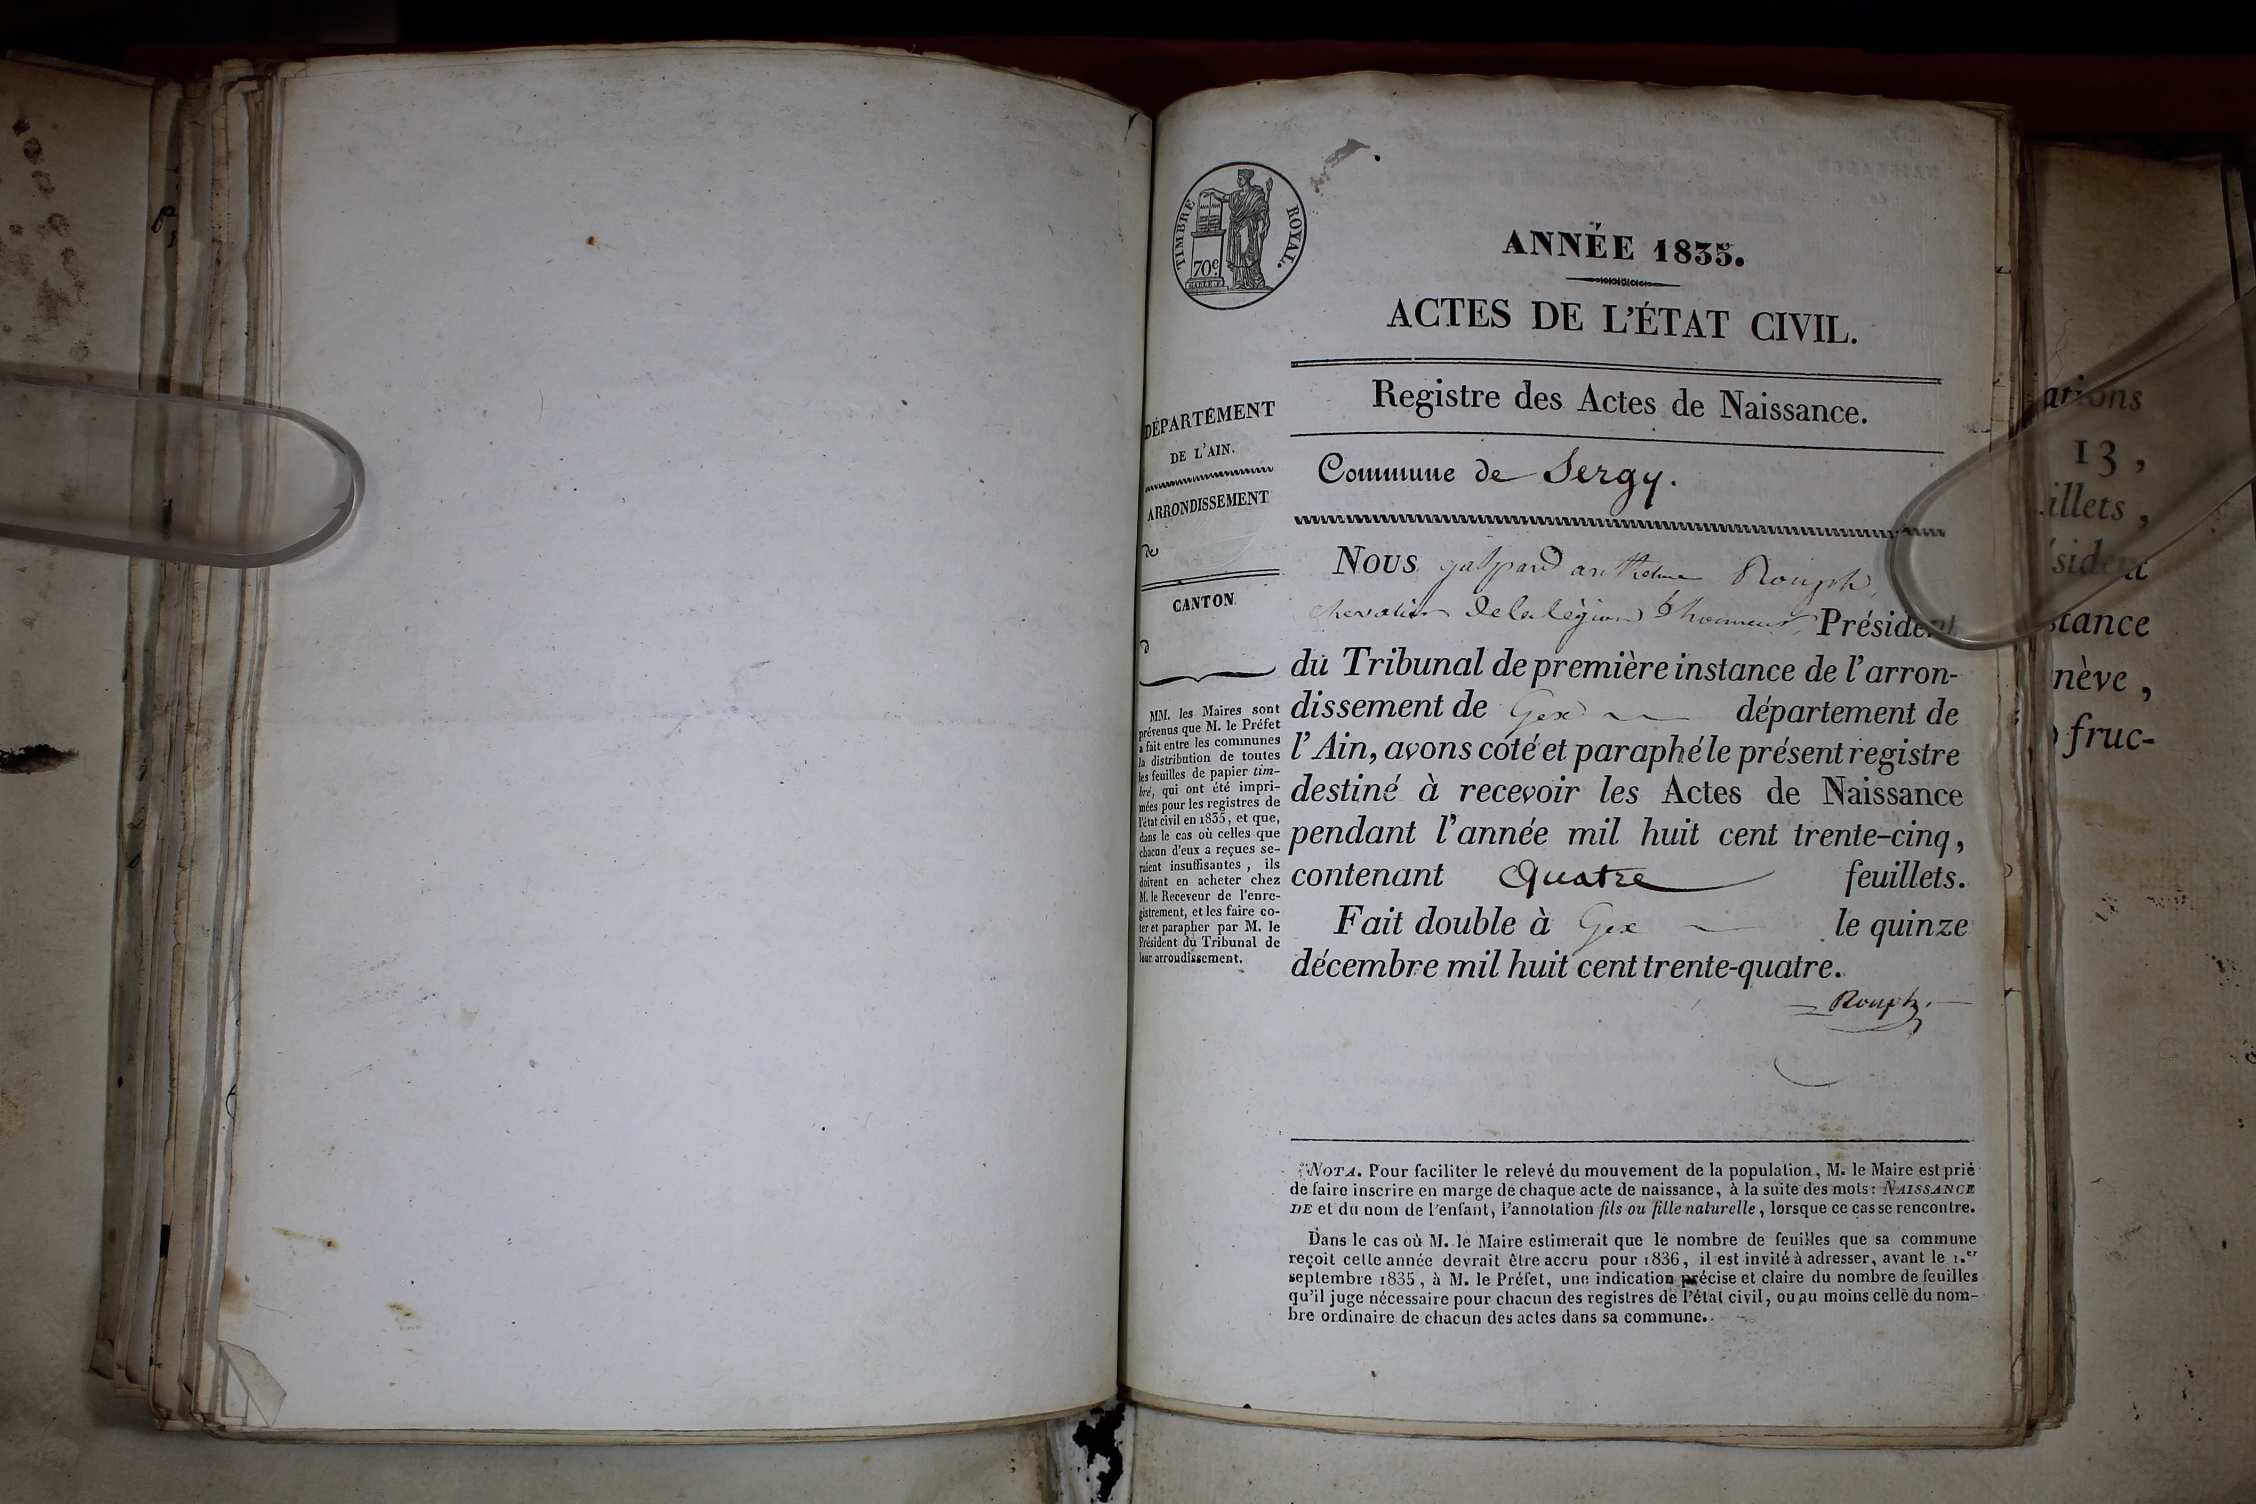 TIMBRE ROYAL.
70c.
ANNÉE 1835.
ACTES DE L'ÉTAT CIVIL.
Registre des Actes de Naissance.
Commune de Sergy.
DÉPARTEMENT
DE L'AIN.
ARRONDISSEMENT
de
CANTON
d
MM. les Maires sont
prévenus que M. le Préfet
a fait entre les communes
la distribution de toutes
les feuilles de papier tim-
bré, qui ont été impri-
mées pour les registres de
l'état civil en 1835, et que,
dans le cas où celles que
chacun d'eux a reçues se-
raient insuffisantes, ils
doivent en acheter chez
M. le Receveur de l'enre-
gistrement, et les faire co-
ter et parapher par M. le
Président du Tribunal de
leur arroudissement.
Nous gaspard anthelme Rouph,
chevalier de la légion d'honneur, Président
du Tribunal de première instance de l'arron-
dissement de Gex département de
l'Ain, avons coté et paraphé le présent registre
destiné à recevoir les Actes de Naissance
pendant l'année mil huit cent trente-cinq,
contenant Quatre feuillets.
Fait double à Gex le quinze
décembre mil huit cent trente-quatre.
Rouph
NOTA. Pour faciliter le relevé du mouvement de la population, M. le Maire est prié
de faire inscrire en marge de chaque acte de naissance, à la suite des mots: NAISSANCE
DE et du nom de l'enfant, l'annotation fils ou fille naturelle, lorsque ce cas se rencontre.
Dans le cas où M. le Maire estimerait que le nombre de feuilles que sa commune
reçoit cette année devrait être accru pour 1836, il est invité à adresser, avant le 1.er
septembre 1835, à M. le Préfet, une indication précise et claire du nombre de feuilles
qu'il juge nécessaire pour chacun des registres de l'état civil, ou au moins celle du nom-
bre ordinaire de chacun des actes dans sa commune.
ations
13,
illets,
ésident
stance
nève,
fruc-